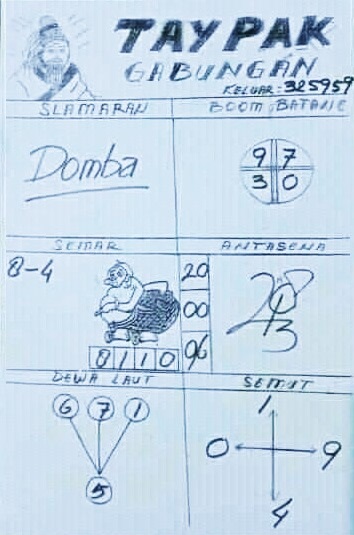 TAYPAK
GABUNGAN
KELUAR: 325959
SLAMARAN
BOOM BATANG
Domba
9 7
3 0
SEMAR
ANTASENA
8-4
20
00
96
8 1 1 0
DEWA LAUT
SEMUT
6 7 1
5
1
0 9
4